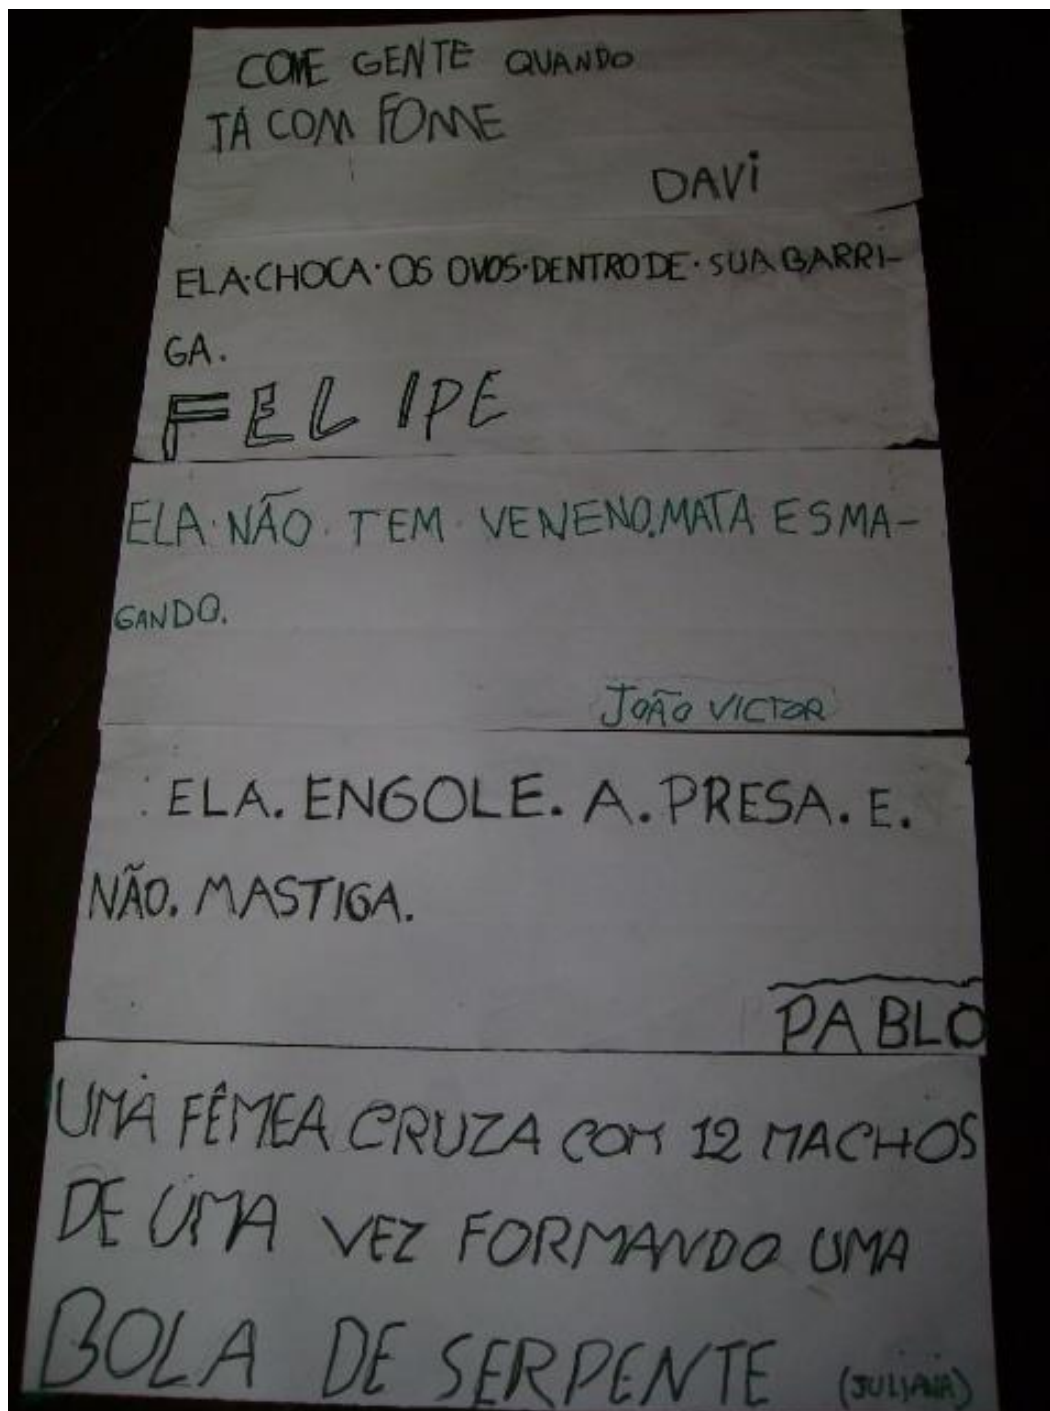 COME GENTE QUANDO
TÁ COM FOME
DAVI
ELA·CHOCA·OS OVOS·DENTRO DE·SUA BARRI-
GA.
FELIPE
ELA·NÃO·TEM·VENENO.MATA ESMA-
GANDO.
JOÃO VICTOR
ELA. ENGOLE. A. PRESA. E.
NÃO. MASTIGA.
PABLO
UMA FÊMEA CRUZA COM 12 MACHOS
DE UMA VEZ FORMANDO UMA
BOLA DE SERPENTE (JULIANA)